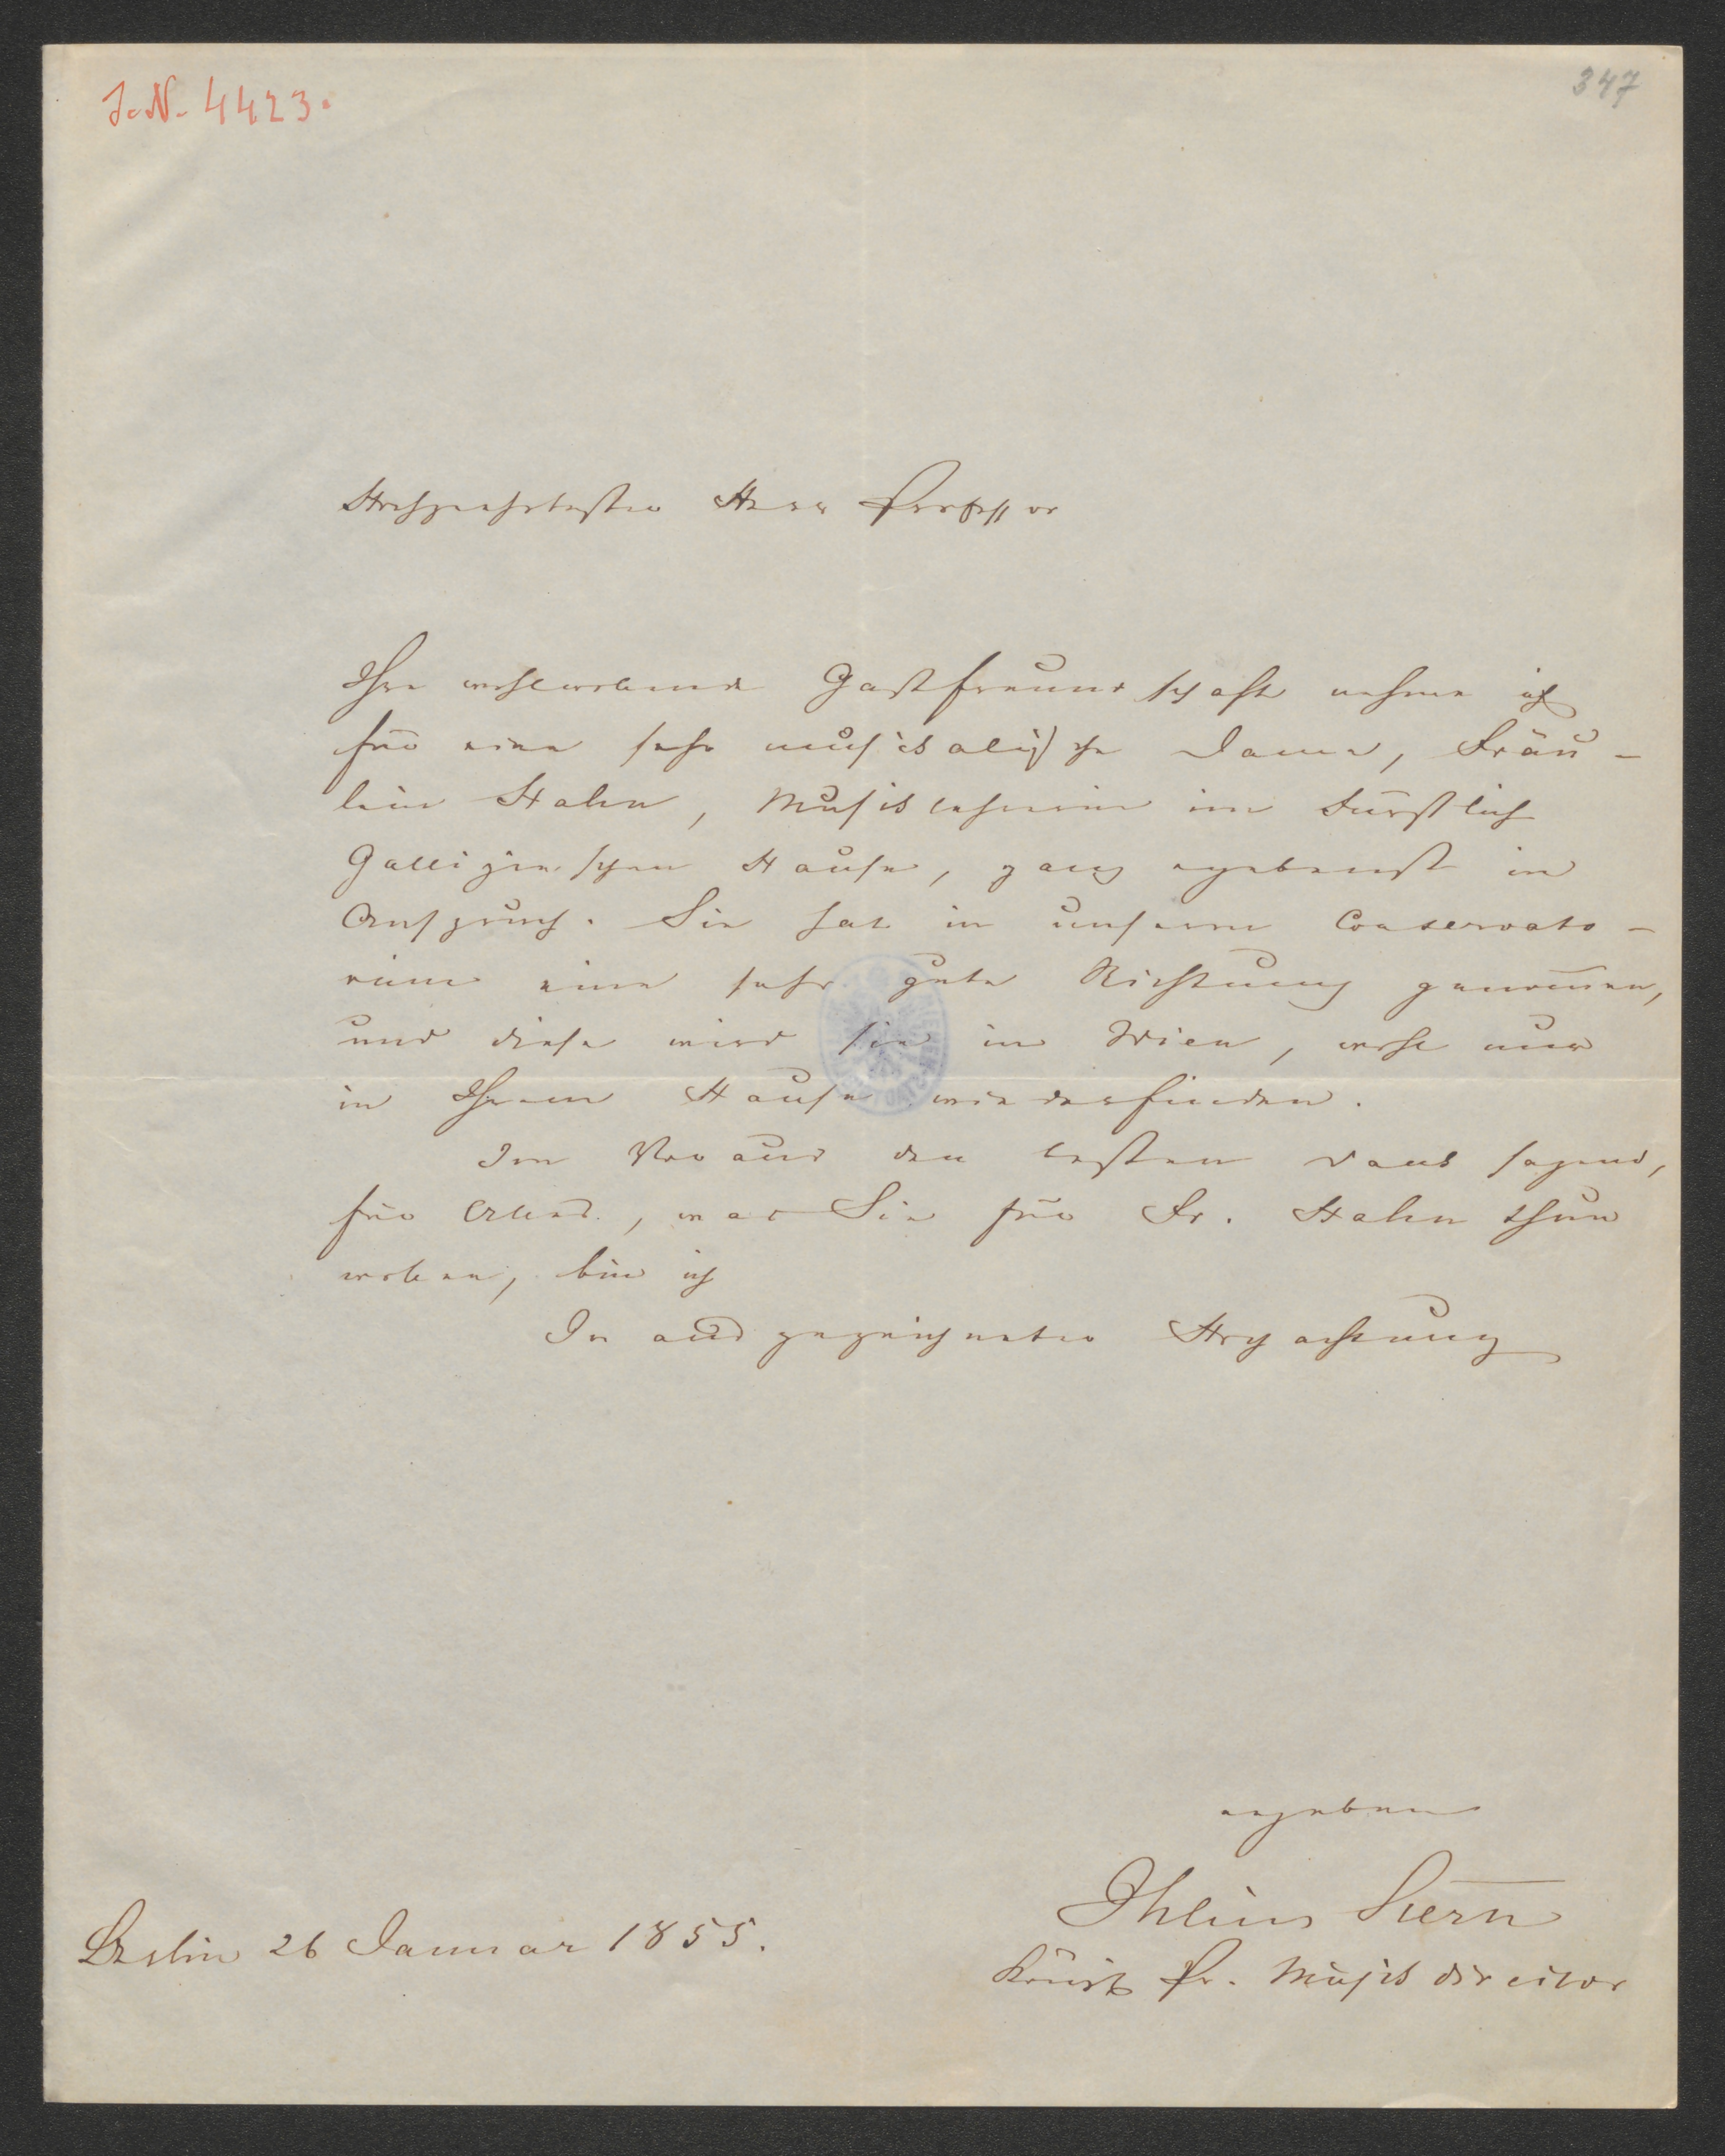 J.N. 4423.
347
Hochgeehrtester Herr Professor
Ihre wohlwollende Gastfreundschaft nehme ich
für eine sehr musikalische Dame, Fräu-
lein Hahn, Musiklehrerin im Fürstlich
Gallizinschen Hause, ganz ergebenst in
Anspruch. Sie hat in unserm Conservato-
rium eine sehr gute Richtung genom̅en,
und diese wird sie in Wien, wohl nur
in Ihrem Hause wiederfinden.
Im Voraus den besten Dank sagend,
für Alles, was Sie für Fr. Hahn thun
wollen, bin ich
In ausgezeichneter Hochachtung
ergebener
Julius Stern
Königl. Pr. Musikdirector
Berlin 26 Januar 1855.